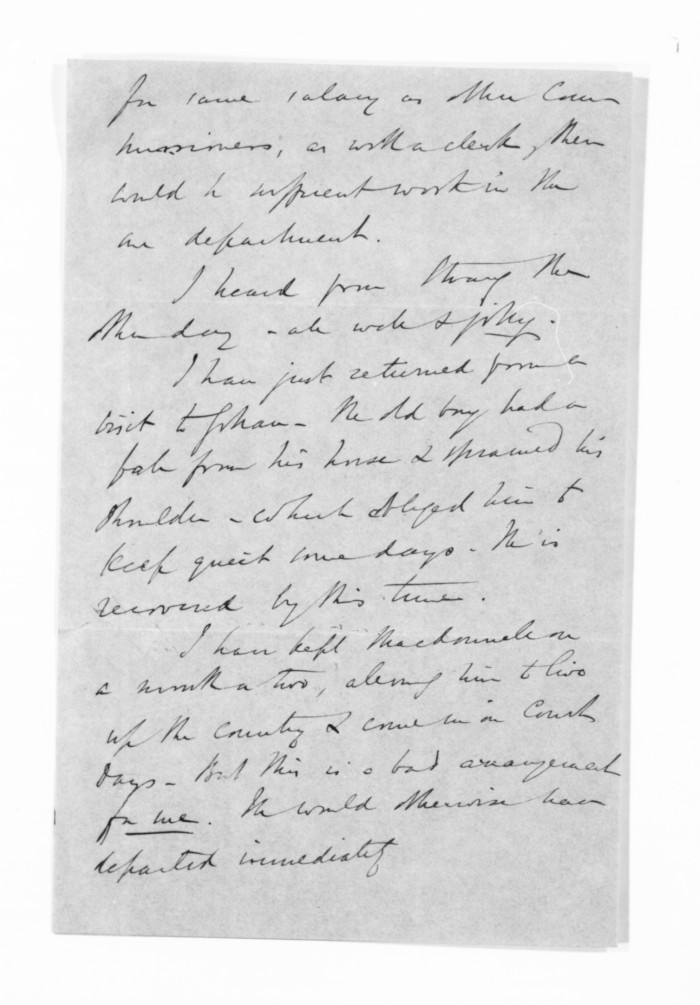 for same salary as other Com
missioners, as with a clerk, there
would be sufficient work in the
one department.
I heard from Strang the
other day - all well & jolly.
I have just returned from a
visit to - The old boy had a
fall from his horse & sprained his
shoulder - which obliged him to
keep quiet some days - He is
recovered by this time.
I have kept Macdonnell on
a month or two, allowing him to live
up the country & come in on Court
days - But this is a bad arrangement
for me. He would otherwise have
departed immediately